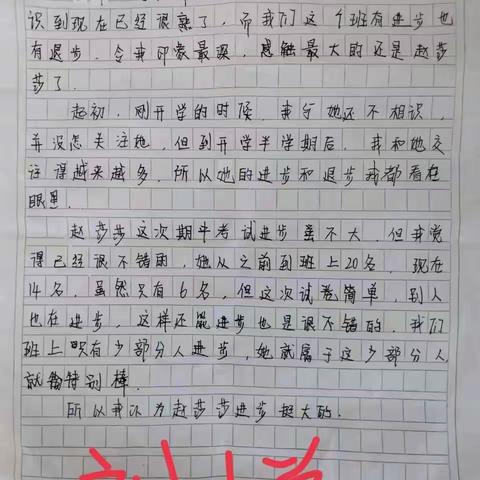 识到现在已经很熟了，而我们这个班有进步也
有退步。令我印象最深，感触最大的还是赵莎
莎了。
起初，刚开学的时候，我与她还不相识，
并没怎关注她，但到开学半学期后，我和她交
往得越来越多，所以她的进步和退步我都看在
眼里。
赵莎莎这次期中考试进步虽不大，但我觉
得已经很不错雨，她从之前到班上20名，现在
14名，虽然只有6名，但这次试卷简单，别人
也在进步，这样还能进步也是很不错的，我们
班上只有少部分人进步，她就属于这少部分人，
就偷特别棒.
所以我认为赵莎莎进步挺大的.